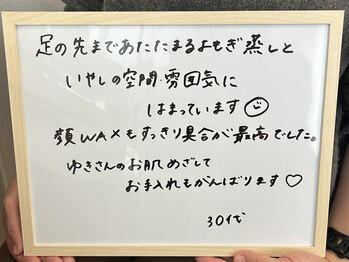 足の先まであたたまるよもぎ蒸しと
いやしの空間・雰囲気に
はまっています☺
顔WAXもすっきり具合が最高でした。
ゆきさんのお肌めざして
お手入れもがんばります♡
30代